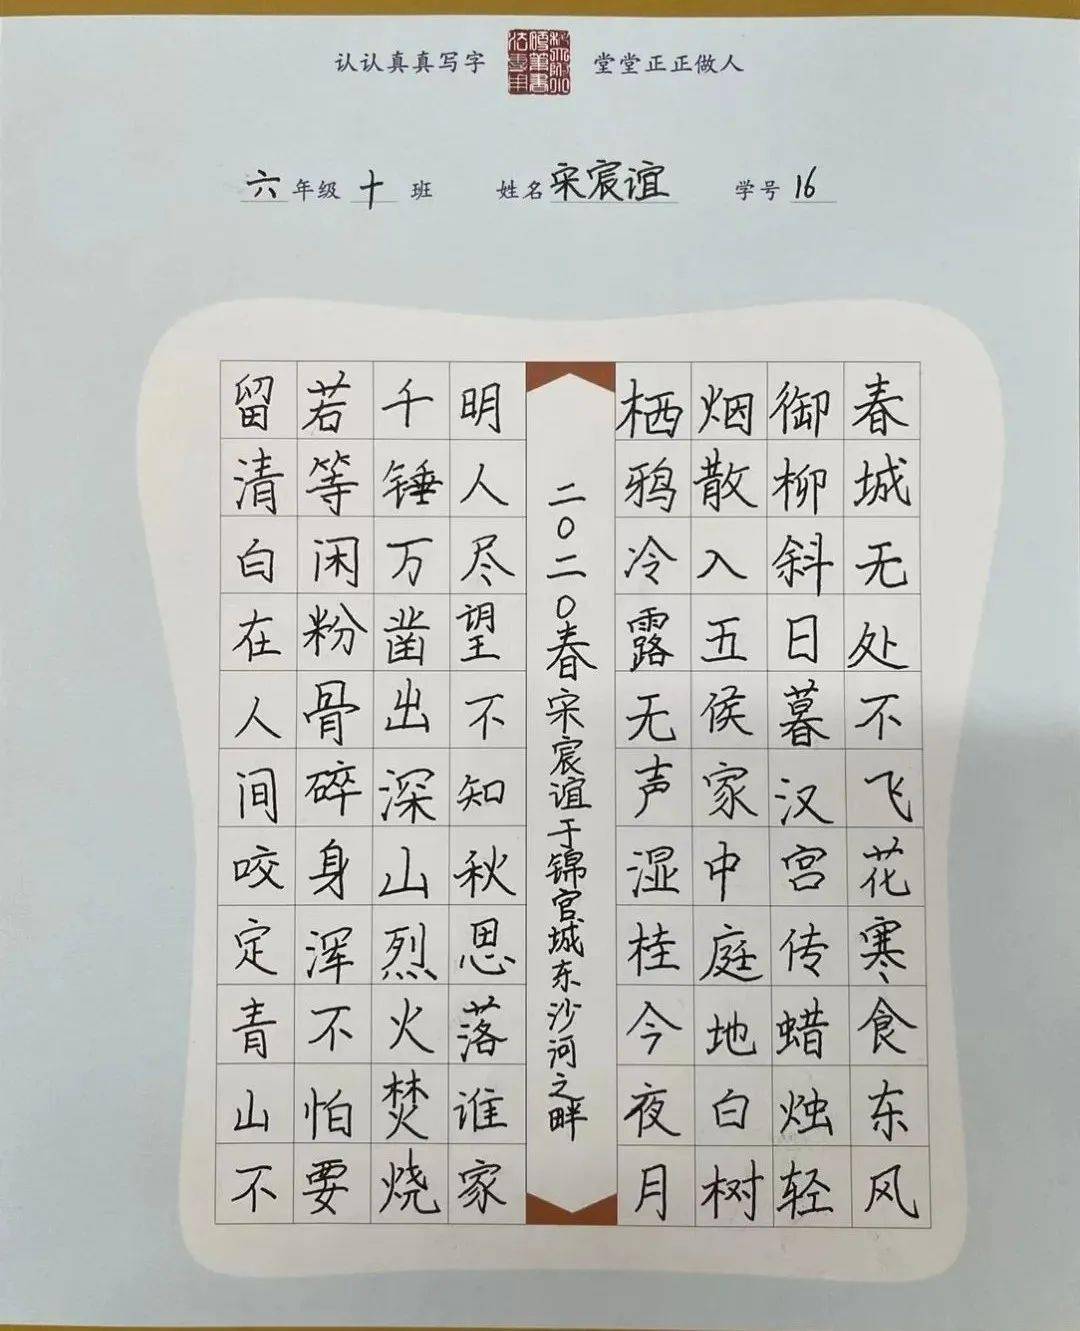 认认真真写字 堂堂正正做人
六年级十班 姓名宋宸谊 学号16
春城无处不飞花寒食东风
御柳斜日暮汉宫传蜡烛轻
烟散入五侯家中庭地白树
栖鸦冷露无声湿桂今夜月
二0二0春宋宸谊于锦官城东沙河之畔
明人尽望不知秋思落谁家
千锤万凿出深山烈火焚烧
若等闲粉骨碎身浑不怕要
留清白在人间咬定青山不